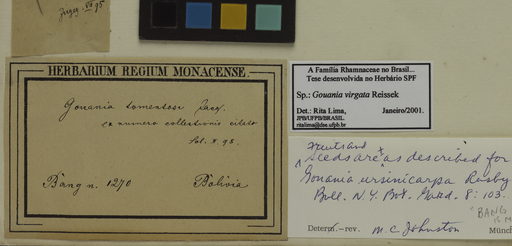 VII 95
HERBARIUM REGIUM MONACENSE.
Gouania tomentosa Jacq.
ex numero collectionis citato
Bang n. 1270 Bolivia
A Família Rhamnaceae no Brasil...
Tese desenvolvida no Herbário SPF
Sp.: Gouania virgata Reissek
Det.: Rita Lima, Janeiro/2001.
JPB/UFPB/BRASIL.
ritalima@dse.ufpb.br
Fruits and
seeds are as described for
Gouania ursinicarpa Rusby
Bull. N.Y. Bot. Gard. 8: 103.
"BANG
Determ.-rev. M. C. Johnston Münc